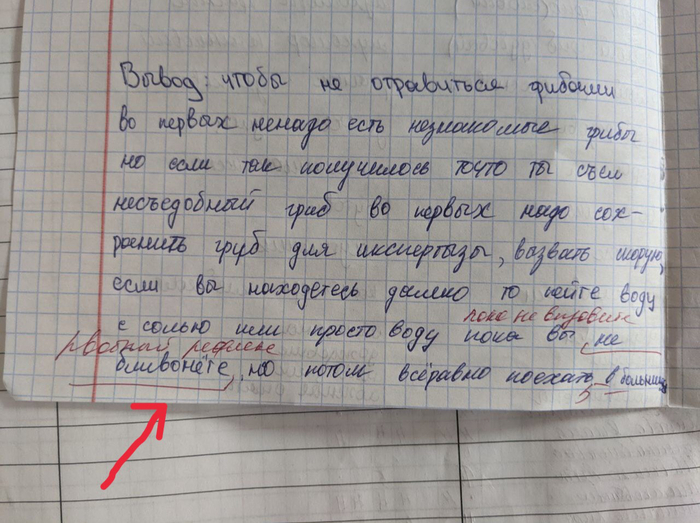 Вывод: чтобы не отравиться грибами
во первых ненадо есть незнакомые грибы
но если так получилось точто ты съел
несъедобный гриб во первых надо сох-
ранить груб для икспертызы, вызвать скорую,
если вы находетесь далеко то пейте воду
пока не вызовите
с солью или просто воду пока вы не
рвотный рефлекс
бливонёте, но потом всёравно поехать в больницу
5-